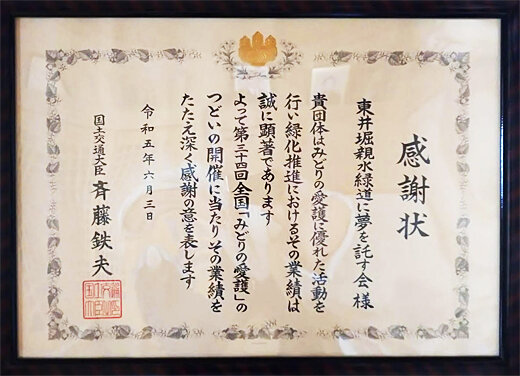 感謝状
東井堀親水緑道に夢を託す会 様
貴団体はみどりの愛護に優れた活動を
行い緑化推進におけるその業績は
誠に顕著であります
よって第三十四回全国「みどりの愛護」の
つどいの開催に当たりその業績を
たたえ深く感謝の意を表します
令和五年六月三日
国土交通大臣 斉藤鉄夫